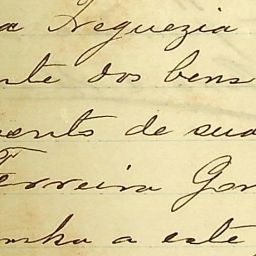 a Freguezia
nte dos bens
mento de sua
Ferreira Gon
inha a este